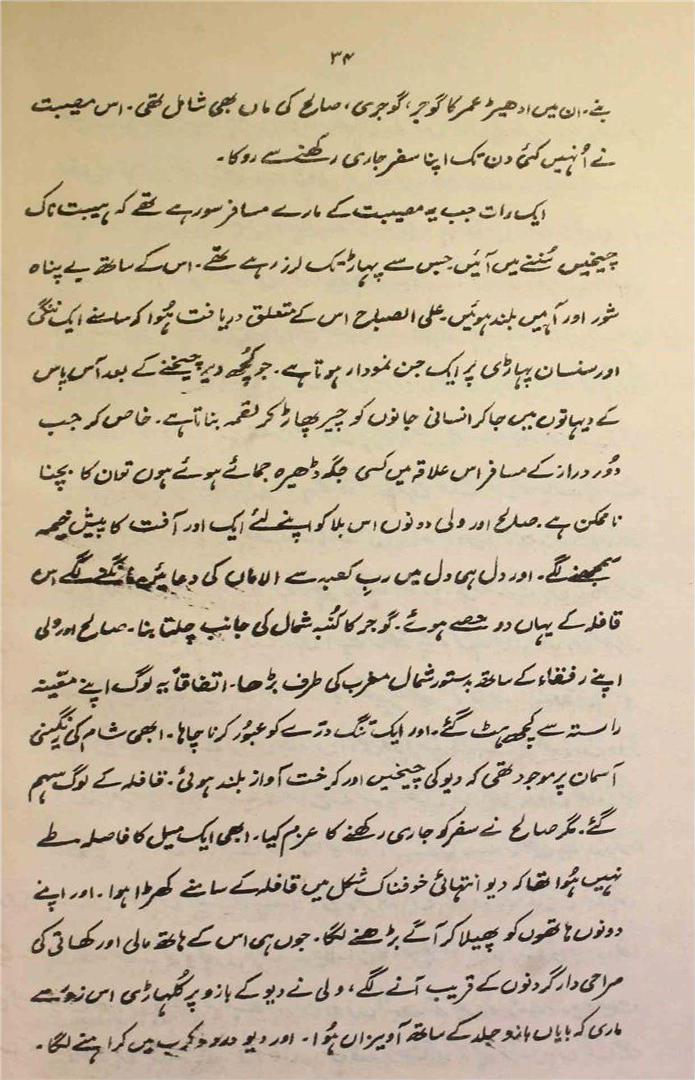 ۳۴
بنے۔ ان میں ادھیڑ عمر کا گوجر، گوجری، صالح کی ماں بھی شامل تھی۔ اس مصیبت
نے اُنہیں کئی دن تک اپنا سفر جاری رکھنے سے روکا۔
ایک رات جب یہ مصیبت کے مارے مسافر سو رہے تھے کہ ہیبت ناک
چیخیں سُننے میں آئیں جس سے پہاڑ تک لرز رہے تھے۔ اس کے ساتھ بے پناہ
شور اور آہیں بلند ہوئیں۔ علی الصباح اس کے متعلق دریافت ہُوا کہ سامنے ایک ننگی
اور سنسان پہاڑی پر ایک جن نمودار ہوتا ہے۔ جو کچُھ دیر چیخنے کے بعد آس پاس
کے دیہاتوں میں جا کر انسانی جانوں کو چیر پھاڑ کر لقمہ بناتا ہے۔ خاص کر جب
دُور دراز کے مسافر اس علاقہ میں کسی جگہ ڈھیرہ جمائے ہوئے ہوں تو ان کا بچنا
ناممکن ہے۔ صالح اور ولی دونوں اس بلا کو اپنے لئے ایک اور آفت کا پیش خیمہ
سمجھنے لگے۔ اور دل ہی دل میں ربِ کعبہ سے الاماں کی دعائیں مانگنے لگے اس
قافلہ کے یہاں دو حصے ہوئے۔ گوجر کا کنُبہ شمال کی جانب چلتا بنا۔ صالح اور ولی
اپنے رفقاء کے ساتھ بدستور شمال مغرب کی طرف بڑھا۔ اتفاقاً یہ لوگ اپنے متعینہ
راستہ سے کچھ ہٹ گئے۔ اور ایک تنگ درّے کو عبوُر کرنا چاہا۔ ابھی شام کی رنگینی
آسمان پر موجود تھی کہ دیو کی چیخیں اور کرخت آواز بلند ہوئی۔ قافلہ کے لوگ سہم
گئے۔ مگر صالح نے سفر کو جاری رکھنے کا عزم کیا۔ ابھی ایک میل کا فاصلہ طے
نہیں ہُوا تھا کہ دیو انتہائی خوفناک شکل میں قافلہ کے سامنے کھڑا ہوا۔ اور اپنے
دونوں ہاتھوں کو پھیلا کر آگے بڑھنے لگا۔ جوں ہی اس کے ہاتھ مالی اور کھاتی کی
صراحی دار گردنوں کے قریب آنے لگے، ولی نے دیو کے بازو پر کُلہاڑی اس زور سے
ماری کہ بایاں بازو جلد کے ساتھ آویزاں ہُوا۔ اور دیو درد و کرب میں کراہنے لگا۔